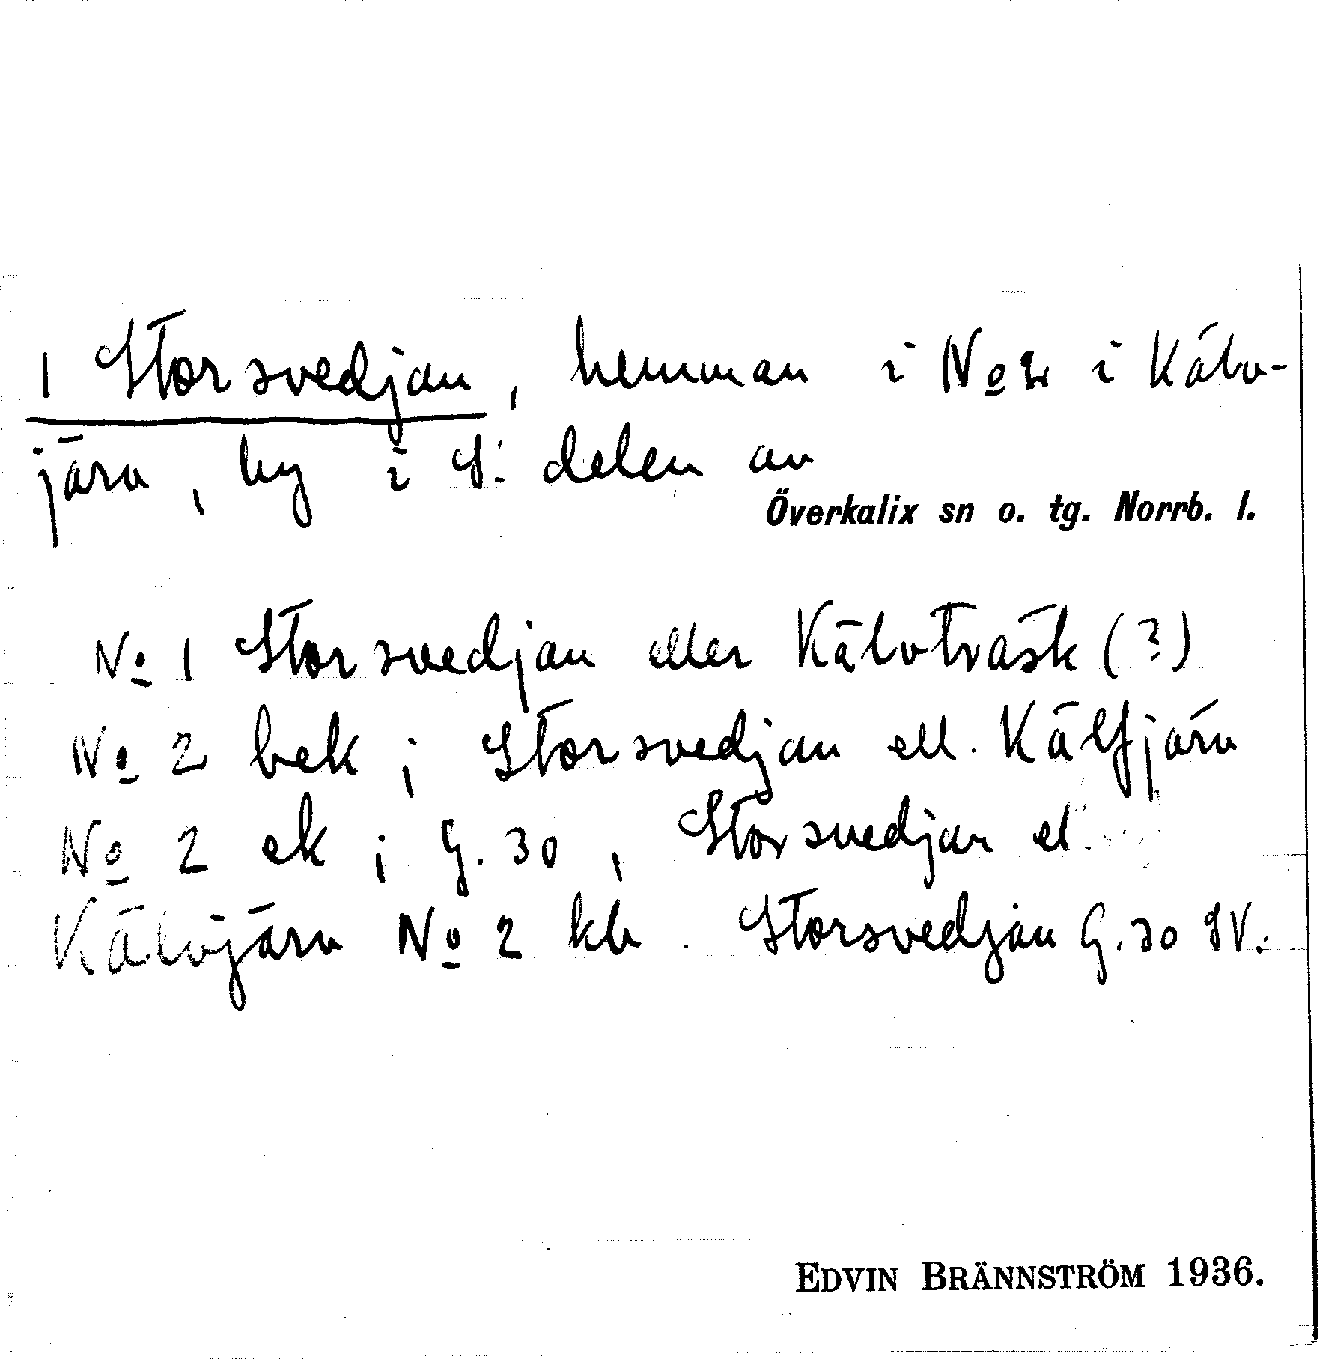 1 Storsvedjan, hemman i No 2 i Kälv-
järv, by i S. delen av
Överkalix sn o. tg. Norrb. l.
No 1 Storsvedjan eller Kälvträsk (?)
No 2 bek ; Storsvedjan ell. Kälfjärv
No 2 ek ; G. 30 , Storsvedjan el.
Kälvjärv No 2 kb . Storsvedjan G. 30 SV.
EDVIN BRÄNNSTRÖM 1936.